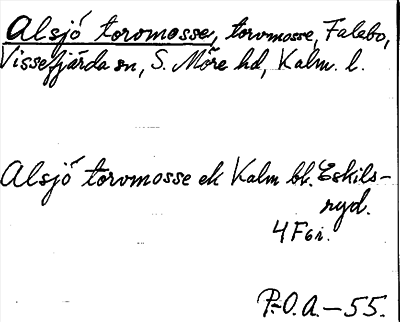 Alsjö torvmosse, torvmosse, Falabo,
Vissefjärda sn, S. Möre hd, Kalm. l.
Alsjö torvmosse ek Kalm bl. Eskils-
ryd.
4 F6i.
P.-O. A. - 55.